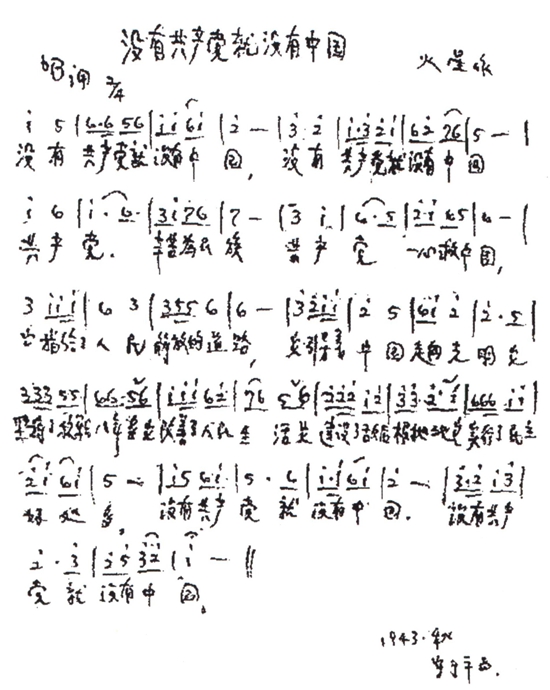 没有共产党就没有中国
B调 2/4 火星作
i 5 | 6·6 56 | i i 6i | 2 — | 3 2 | i·3 2i | 62 76 | 5 — |
没有 共产党就 没有中国, 没有 共产党就 没有中国
i 6 | i · 6· | 3i 76 | 7 — | 3 i | 6 · 5 | 2·i 65 | 6 — |
共产党. 辛苦为民族 共产党 一心救中国,
3 i i i | 6 3 | 355 6 | 6 — | 32 i i | 2 5 | 6i 2 | 2 · 5 |
他指给了人民 解放的道路, 中国走向光明
333 55 | 66·56 | i i i 62 | 76 56 | 222 i2 | 33·2·2 | 666 i i |
坚持了抗战八年 改善了人民生活 建设了 根据地 实行了民主
2i 6i | 5 — | i5 6i | 5 · 6 | i·i 6i | 2 — | 3·2 i3 |
好处多, 没有共产党就 没有中国. 没有共产
2 · 3 | 25 32 | i — ‖
党就 没有中国。
1943·秋